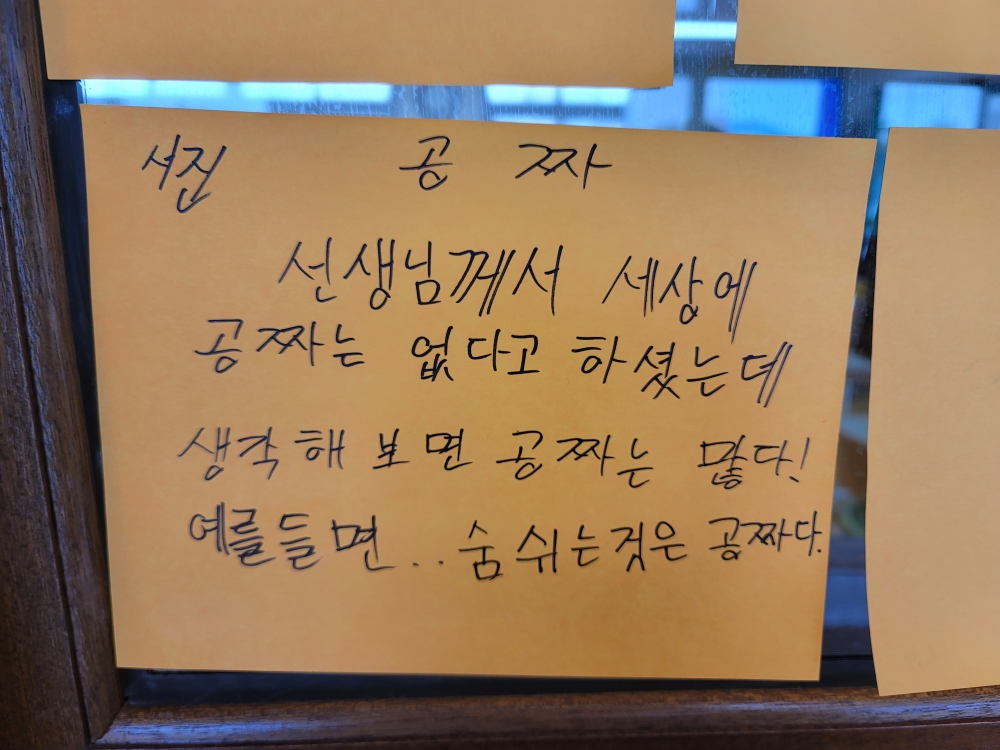 서진 공짜
선생님께서 세상에
공짜는 없다고 하셨는데
생각해 보면 공짜는 많다!
예를들면.. 숨쉬는것은 공짜다.